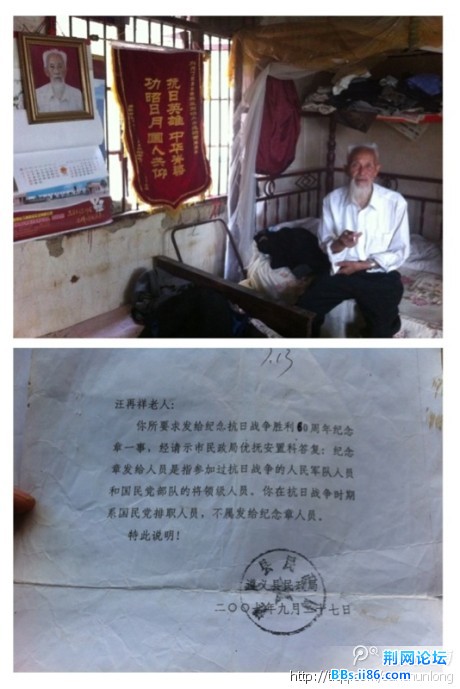 抗日英雄 中华脊梁
功昭日月 国人共仰
7.13
汪再祥老人:
你所要求发给纪念抗日战争胜利60周年纪念
章一事,经请示市民政局优抚安置科答复:纪念
章发给人员是指参加过抗日战争的人民军队人员
和国民党部队的将领级人员。你在抗日战争时期
系国民党排职人员,不属发给纪念章人员。
特此说明!
遵义县民政局
年九月二十七日
荆网论坛
BBs.ji86.com